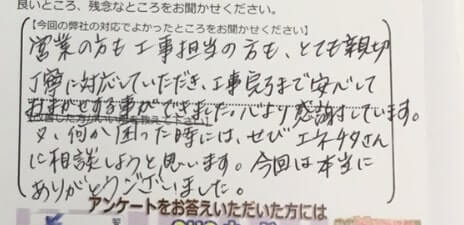 良いところ、残念なところをお聞かせください。
【今回の弊社の対応でよかったところをお聞かせください】
営業の方も工事担当の方も、とても親切
丁寧に対応していただき、工事完了まで安心して
おまかせする事ができました。心より感謝しています。
又、何か困った時には、ぜひエネチタさん
に相談しようと思います。今回は本当に
ありがとうございました。
アンケートをお答えいただいた方には